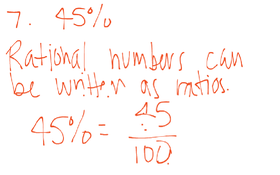 7. 45%
Rational numbers can
be written as ratios.
45% = 45/100